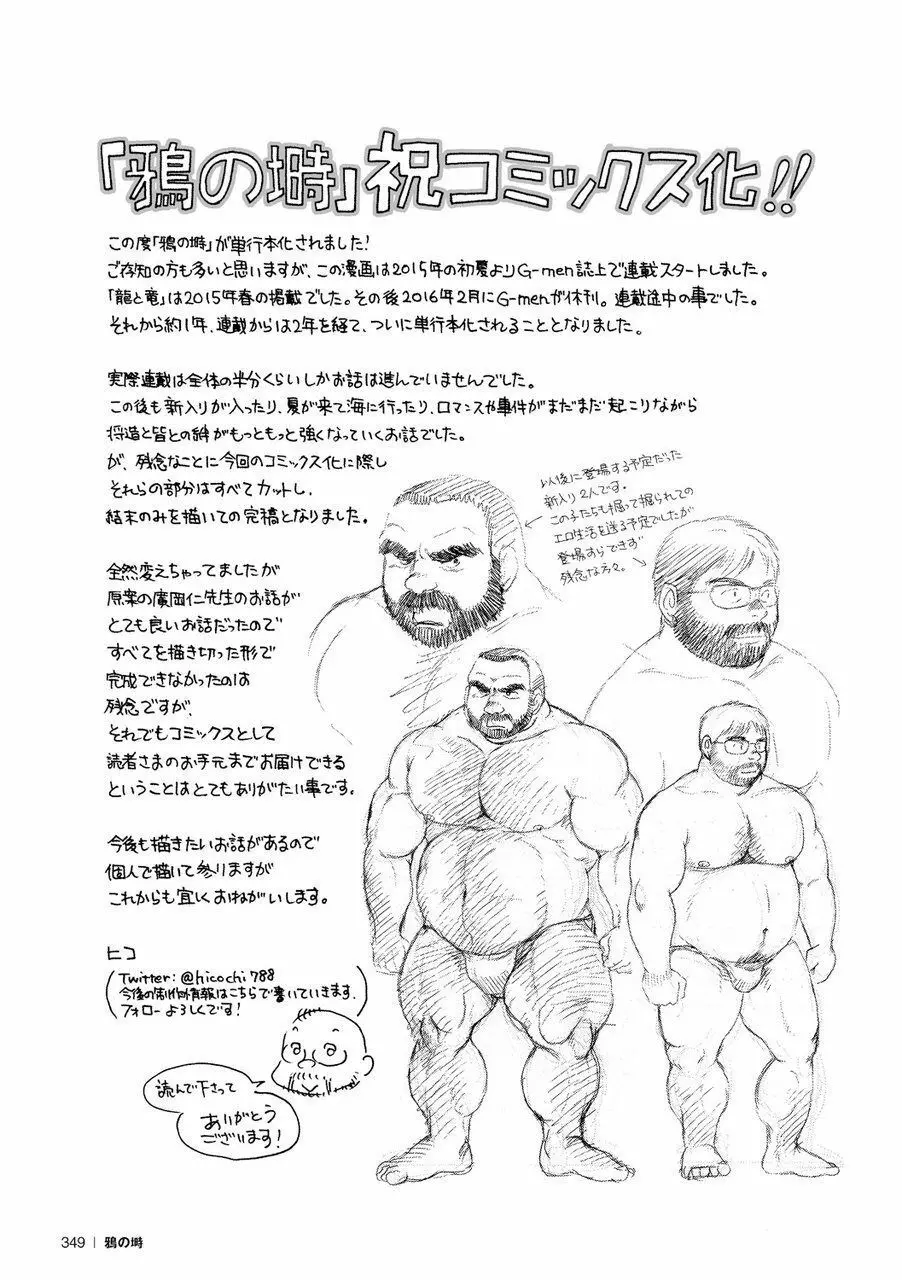 「鴉の塒」祝コミックス化!!
この度「鴉の塒」が単行本化されました!
ご存知の方も多いと思いますが、この漫画は2015年の初夏よりG-men誌上で連載スタートしました。
「龍と竜」は2015年春の掲載でした。その後2016年2月にG-menが休刊。連載途中の事でした。
それから約1年、連載からは2年を経て、ついに単行本化されることとなりました。
実際連載は全体の半分くらいしかお話は進んでいませんでした。
この後も新入りが入ったり、夏が来て海に行ったり、ロマンスや事件がまだまだ起こりながら
将造と皆との絆がもっともっと強くなっていくお話でした。
が、残念なことに今回のコミックス化に際し
それらの部分はすべてカットし、
結末のみを描いての完稿となりました。
以後に登場する予定だった
新入り2人です。
この子たちも掘って掘られての
エロ生活を送る予定でしたが
登場すらできず
残念な方々。
全然変えちゃってましたが
原案の廣岡仁先生のお話が
とても良いお話だったので
すべてを描き切った形で
完成できなかったのは
残念ですが、
それでもコミックスとして
読者さまのお手元までお届けできる
ということはとてもありがたい事です。
今後も描きたいお話があるので
個人で描いて参りますが
これからも宜しくおねがいします。
ヒコ
Twitter:@hicochi788
今後の制作情報はこちらで書いていきます。
フォローよろしくです!
読んで下さって
ありがとう
ございます!
349 | 鴉の塒